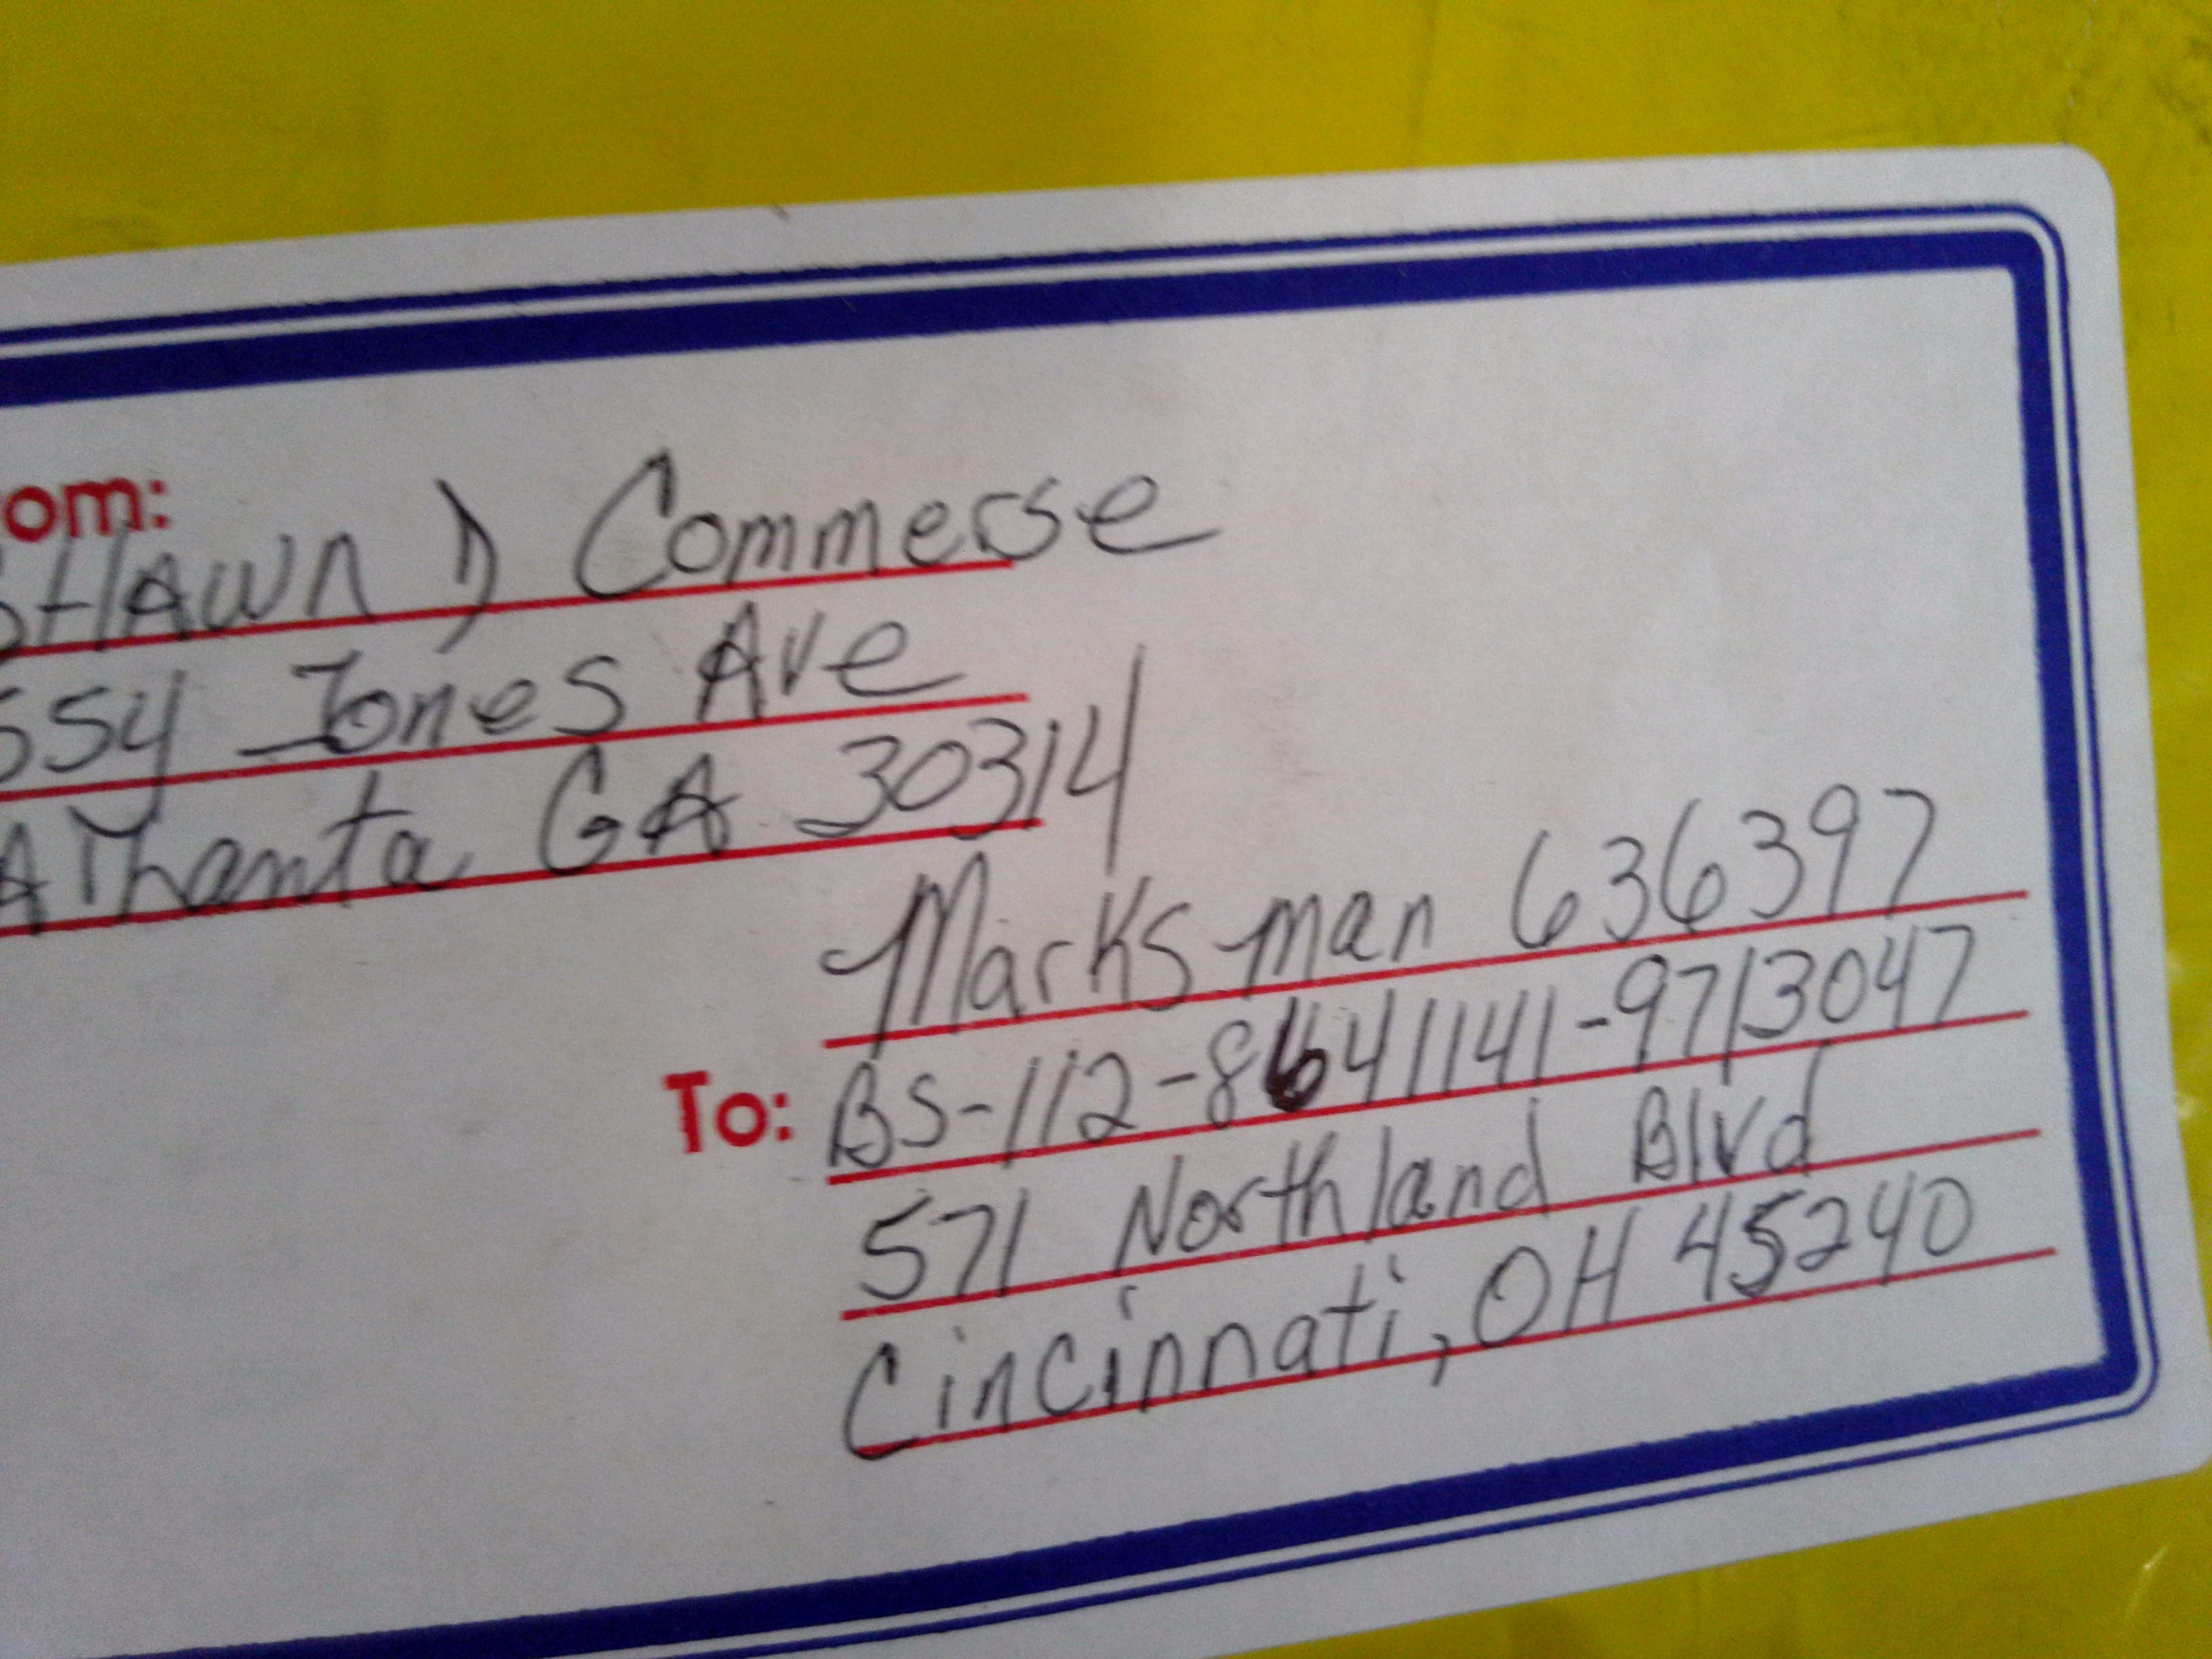 om:
SHAWN D Commerse
554 Jones Ave
AThanta GA 30314
Marksman 636397
To: BS-112-8641141-9713047
571 Northland Blvd
Cincinnati, OH 45240